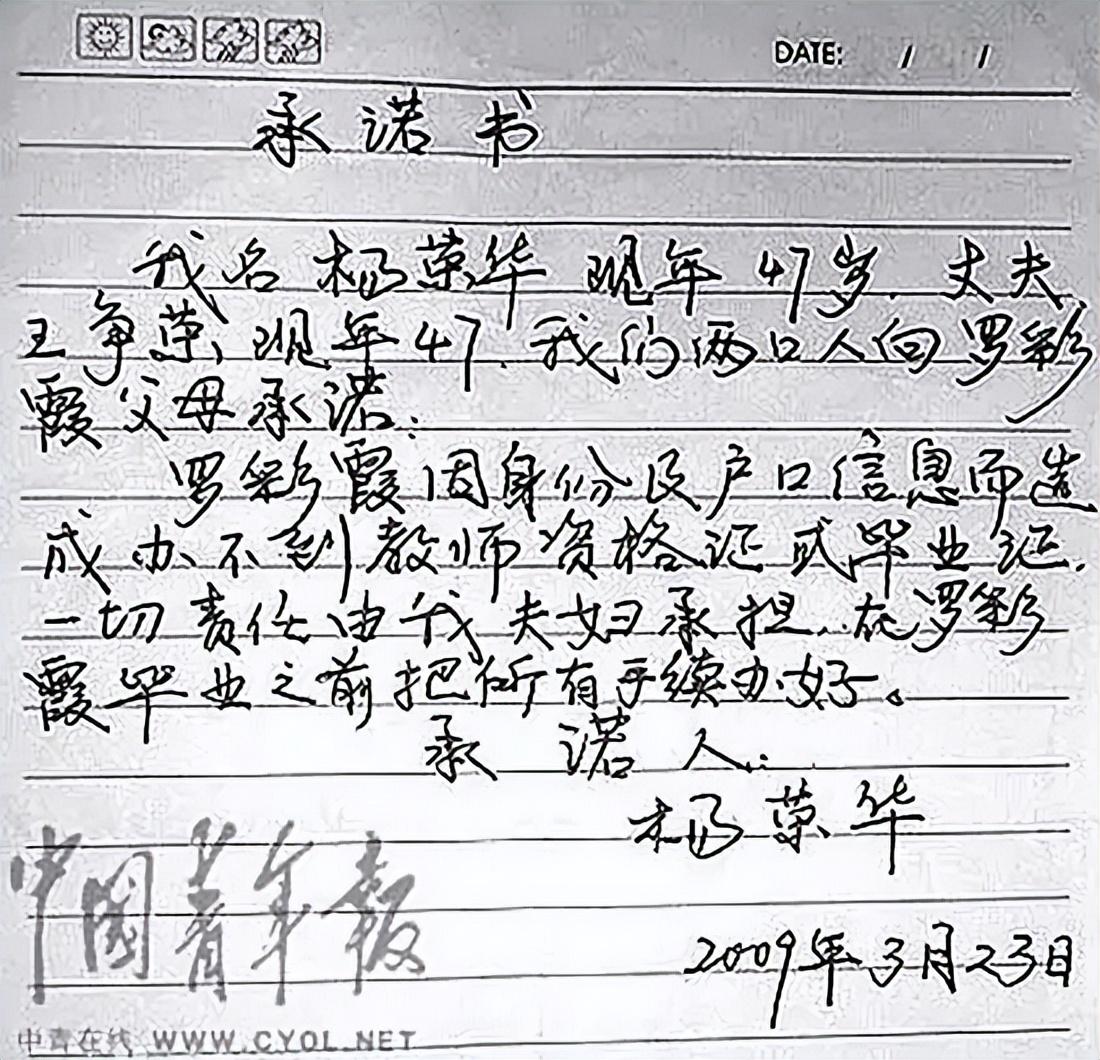 DATE: / /
承诺书
我名杨荣华 现年47岁.丈夫
王争荣,现年47.我们两口人向罗彩
霞父母承诺:
罗彩霞因身份及户口信息而造
成办不到教师资格证或毕业证.
一切责任由我夫妇承担.在罗彩
霞毕业之前把所有手续办好。
承诺人:
杨荣华
2009年3月23日
中国青年报
中青在线 WWW.CYOL.NET